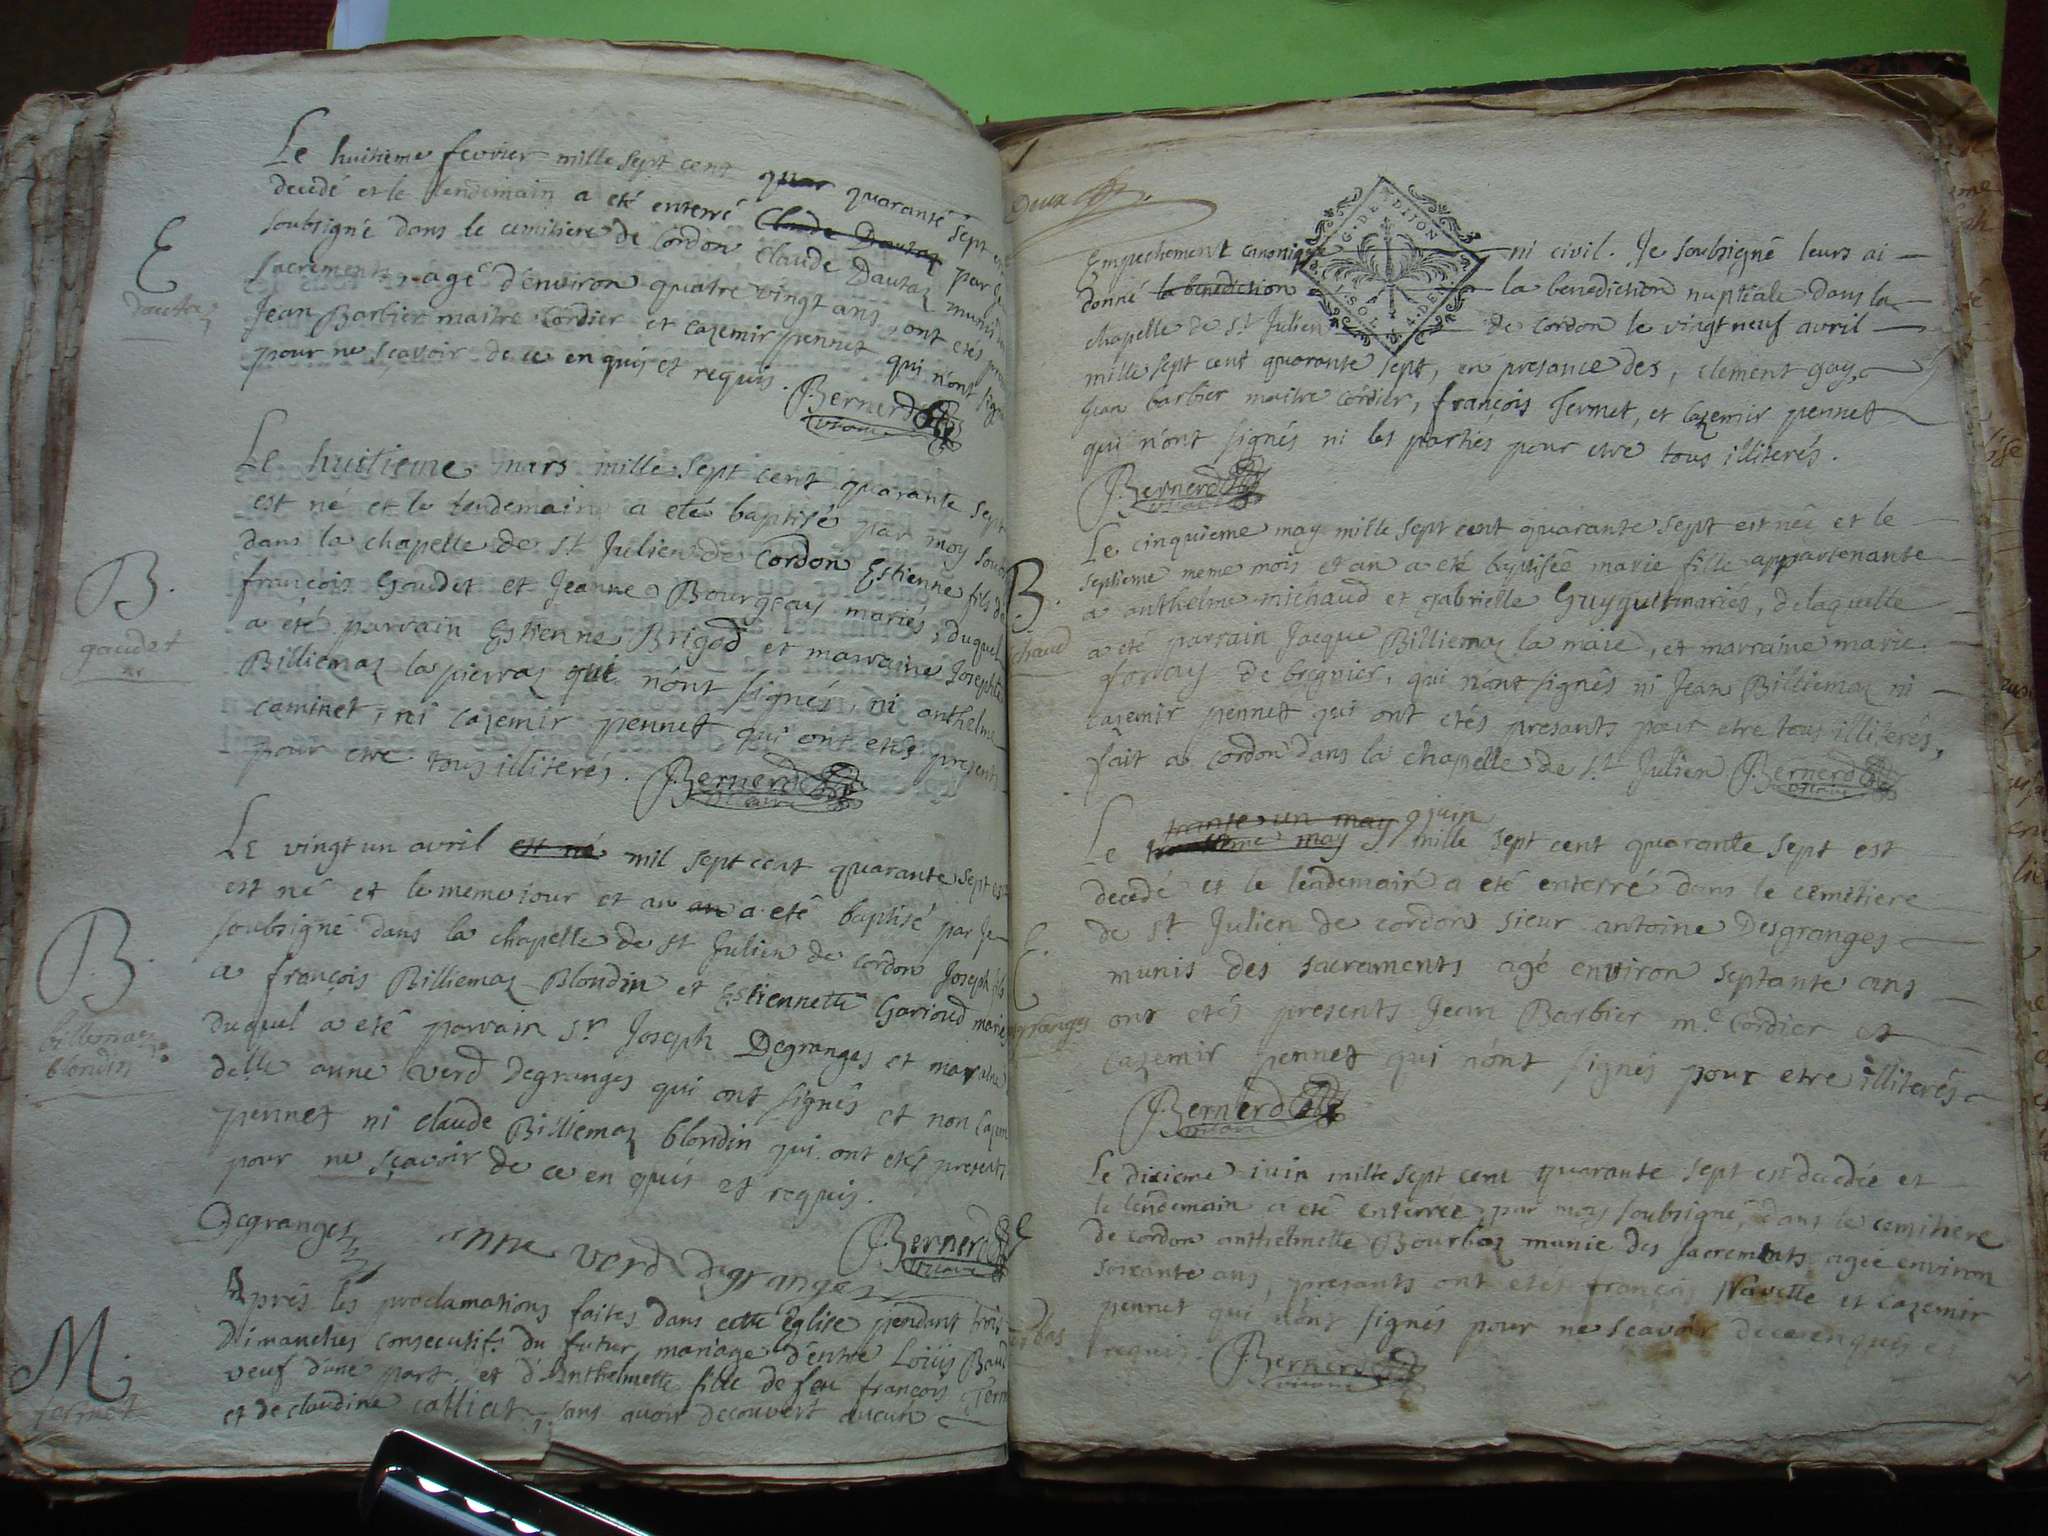 Le huitieme fevrier mille sept cent quar quarante sept est
decedé et le lendemain a eté enterré Claude Dautaz par Je
soubsigné dans le cemitiere de Cordon Claude Dautaz munis des
sacrements, agé d'environ quatre vingt ans, ont etés presents
Jean Barbier maitre Cordier et cazemir pennet qui n'ont signés
pour ne sçavoir de ce enquis et requis. Bernerd
vicaire
E
Le huitieme mars mille sept cent quarante sept
est né et le lendemain a eté baptisé par moy soub
dans la chapelle de st Julien de Cordon Estienne fils de
françois Goudet et Jeanne Bourgeay mariés, duquel
a été parrain Estienne Brigod et marraine Josephte
Billiemaz la pierraz qui n'ont signés, ni anthelme
caminet, ni cazemir pennet qui ont etés presents
pour etre tous illiterés. Bernerd
vicaire
B.
goudet
Le vingt un avril est né mil sept cent quarante sept est
est né et le meme iour et an an a eté baptisé par Je
soubsigné dans la chapelle de st Julien de Cordon Joseph fils
a françois Billiemaz Blondin et Estiennette Gārioud mariés
duquel a eté parrain sr Joseph Degranges et marraine
delle anne verd Degranges qui ont signés et non cazem
pennet ni claude Billiemaz blondin qui ont etés presents
pour ne sçavoir de ce enquis et requis.
B.
billiemaz
blondin
Degranges anne verd degranges Bernerd
vicaire
Aprés les proclamations faites dans cette Eglise pendant trois
dimanches consecutifs du futur mariage d'entre Loüis Baud
veuf d'une part, et d'Anthelmette fille de feu françois Ferm
et de claudine calliat, sans avoir decouvert aucun
M.
fermet
Deux
G. DE DIJON
Empechement canonique ni civil. Je soubsigné leurs ai
donné la benediction la benediction nuptiale dans la
chapelle de st Julien de Cordon le vingt neuf avril
mille sept cent quarante sept, en presance des, clement gay,
Jean barbier maitre cordier, françois Fermet, et cazemir pennet
qui n'ont signés ni les parties pour etre tous illiterés.
Bernerd
vicaire
Le cinquieme may mille sept cent quarante sept est née et le
septieme meme mois et an a eté baptisée marie fille appartenante
a anthelme michaud et gabrielle Guyguit mariés, de laquelle
a eté parrain Jacque Billiemaz la maie, et marraine marie
de bregnier, qui n'ont signés ni Jean Billiemaz ni
cazemir pennet qui ont etés presants pour etre tous illiterés,
fait a Cordon dans la chapelle de st Julien Bernerd
vicaire
B.
chaud
trante un may juin
Le may mille sept cent quarante sept est
decedé et le lendemain a eté enterré dans le cemetiere
de st Julien de cordon sieur antoine Desgranges
munis des sacraments agé environ septante ans
ont etés presents Jean Barbier me. Cordier et
cazemir pennet qui n'ont signés pour etre illiterés
Bernerd
vicaire
E.
Le dixieme iuin mille sept cent quarante sept est decedée et
le lendemain a eté enterrée par moy soubsigné, dans le cemitiere
de cordon anthelmette Bourbaz munie des sacrements agée environ
soixante ans, presants ont etés françois Navette et cazemir
pennet qui n'ont signés pour ne sçavoir de ce enquis et
requis. Bernerd
vicaire